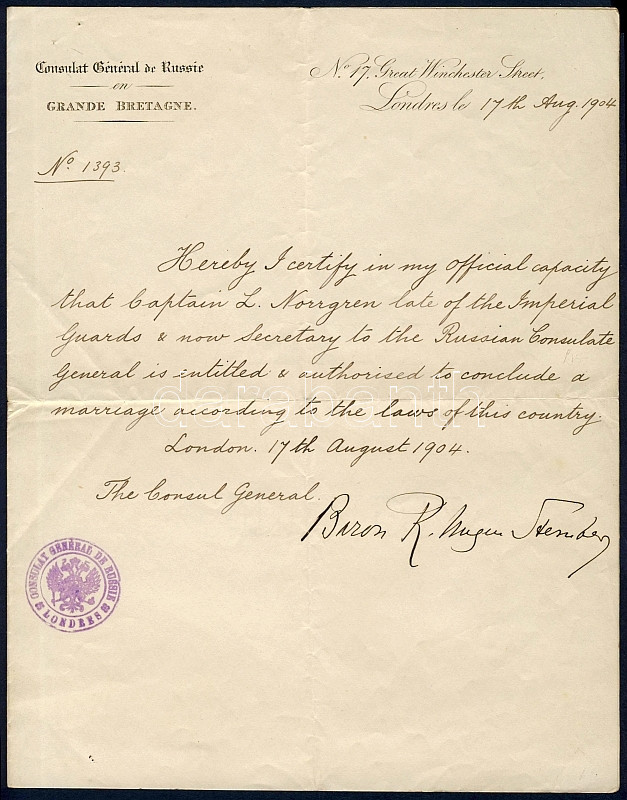 Consulat Général de Russie
en
GRANDE BRETAGNE.
No. 17, Great Winchester Street,
Londres le 17th Aug. 1904
No. 1393.
Hereby I certify in my official capacity
that Captain L. Norrgren late of the Imperial
Guards & now Secretary to the Russian Consulate
General is entitled & authorised to conclude a
marriage according to the laws of this country.
London. 17th August 1904.
The Consul General.
Baron R. Ungern Sternberg
CONSULAT GÉNÉRAL DE RUSSIE
LONDRES
darabanth